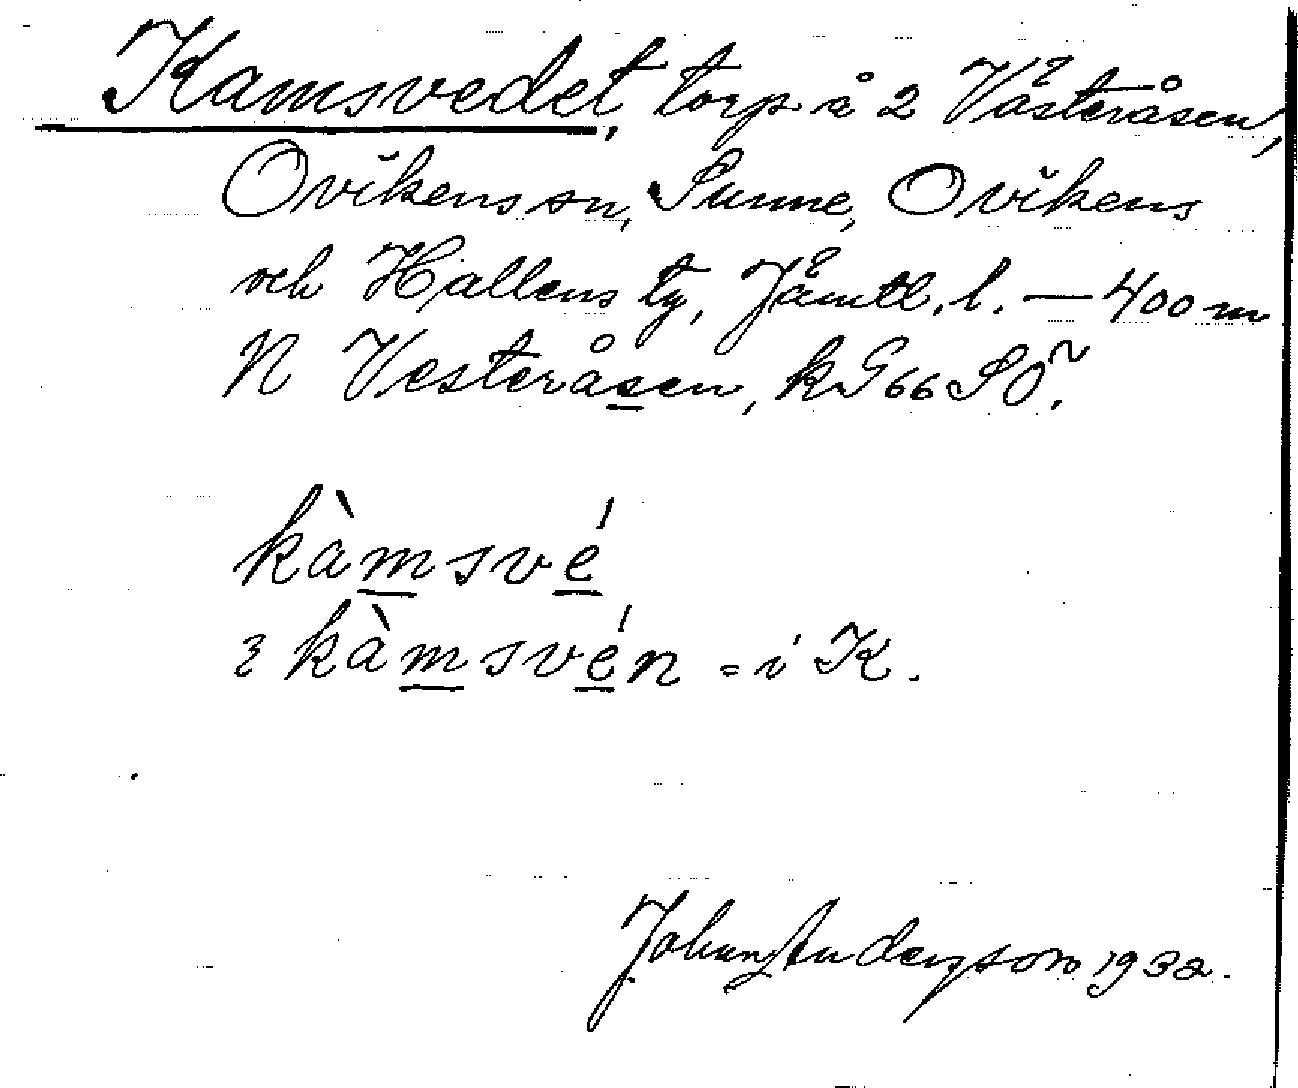 Kamsvedet, torp å 2 Västeråsen,
Ovikens sn, Sunne, Ovikens
och Hallens tg, Jämtl. l. — 400 m
N Vesteråsen, k G 66 SÖ.
kàmsvé
kàmsvén = i K.
Johan Anderzson 1932.